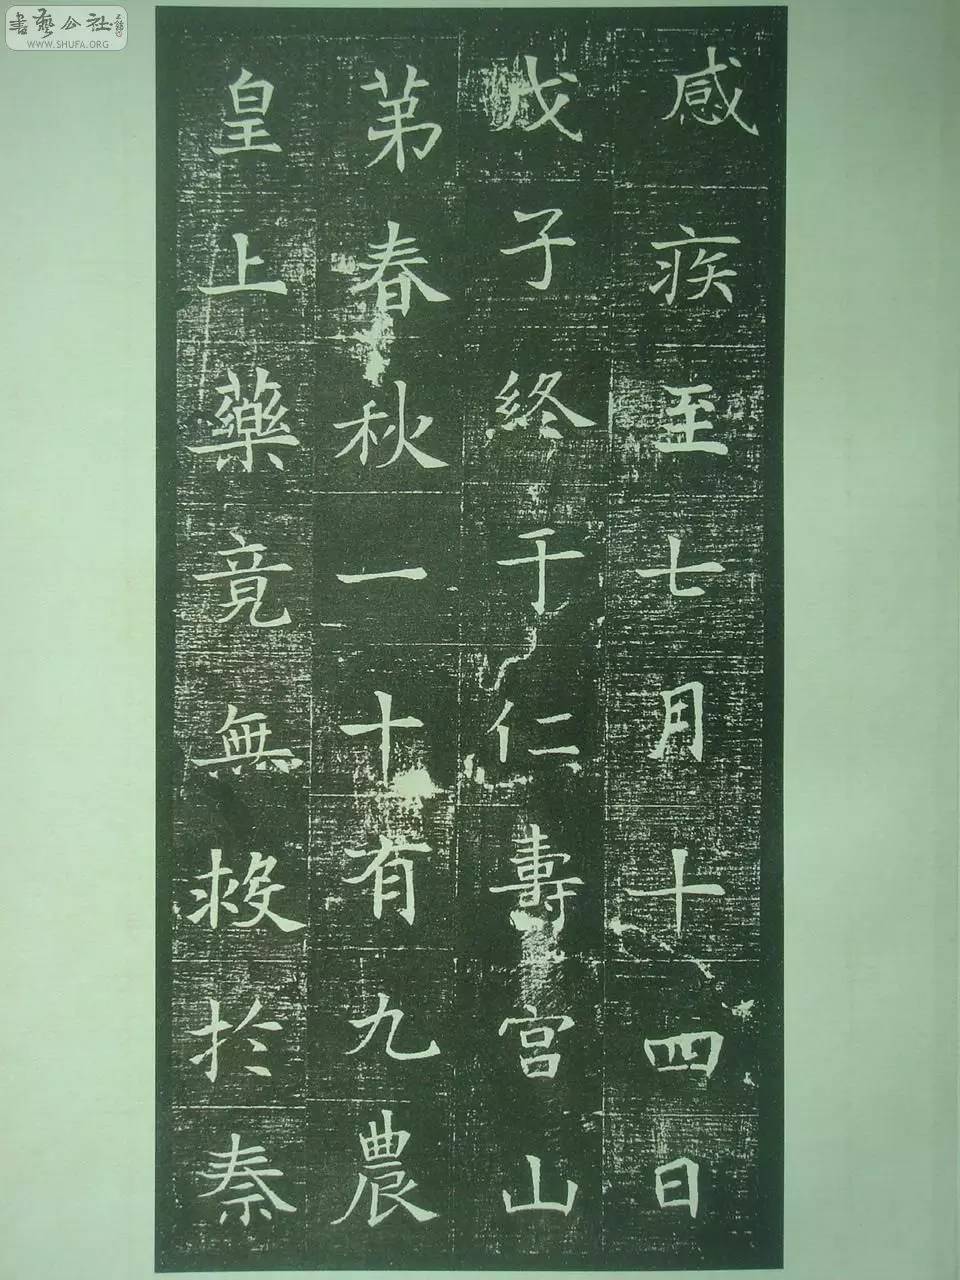 感疾至七月十四日
戊子終于仁壽宮山
苐春秋一十有九農
皇上藥竟無救於秦
書藝公社
WWW.SHUFA.ORG